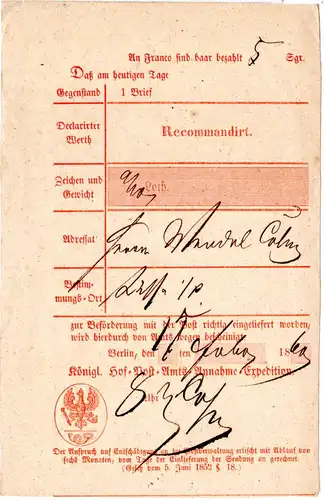 An Franco sind baar bezahlt 5 Sgr.
Daß am heutigen Tage
Gegenstand 1 Brief
Declarirter
Werth
Recommandirt.
Zeichen und
Gewicht
Loth.
Adressat
Herrn Wendel Cohn
Bestim-
mungs-Ort
zur Beförderung mit der Post richtig eingeliefert worden,
wird hierdurch von Amts wegen bescheinigt.
Berlin, den 17ten 186
Königl. Hof-Post-Amts-Annahme-Expedition.
Der Anspruch auf Entschädigung an die Postverwaltung erlischt mit Ablauf von
sechs Monaten, vom Tage der Einlieferung der Sendung an gerechnet
(Gesetz vom 5. Juni 1852 § 18.)